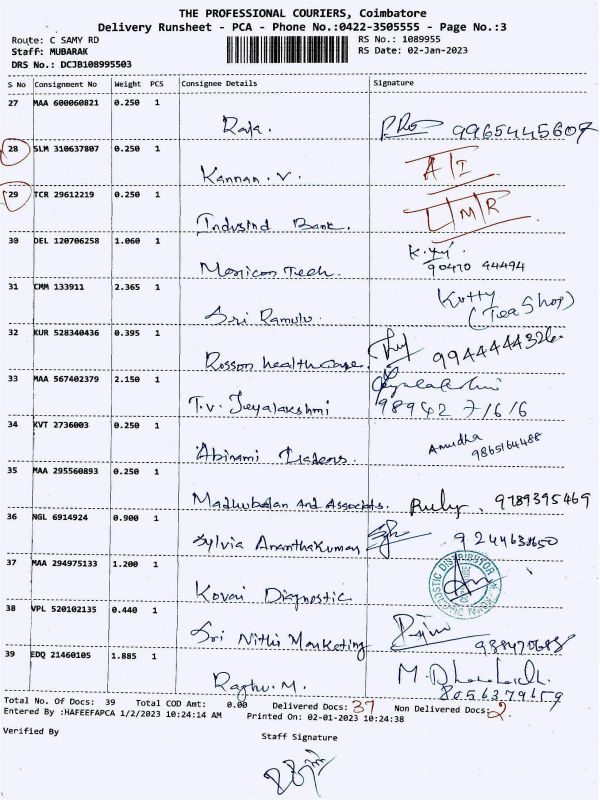 THE PROFESSIONAL COURIERS, Coimbatore
Delivery Runsheet - PCA - Phone No.:0422-3505555 - Page No.:3
Route: C SAMY RD RS No.: 1089955
Staff: MUBARAK RS Date: 02-Jan-2023
DRS No.: DCJB108995503
S No Consignment No Weight PCS Consignee Details Signature
27 MAA 600060821 0.250 1
Raja. 9965445607
28 SLM 310637807 0.250 1
Kannan. V. A/I
29 TCR 29612219 0.250 1
Indusind Bank. L/M/R
30 DEL 120706258 1.060 1
Monicon Tech. 90470 44494
31 CMM 133911 2.365 1 Kutty
Sri Ramulu. (Tea Shop)
32 KUR 528340436 0.395 1
Rosson healthcare. 9944444326
33 MAA 567402379 2.150 1
T.v. Jeyalakshmi 98942 7/6/6
34 KVT 2736003 0.250 1
Abinami Traders. Anudha 9865164488
35 MAA 295560893 0.250 1
Madhubalan And Associats. 9789395469
36 NGL 6914924 0.900 1
Sylvia Ananthakumar
37 MAA 294975133 1.200 1
Kovai Diagnostic
38 VPL 520102135 0.440 1
Sri Nithi Marketing
39 EDQ 21460105 1.885 1
Raghu. M. 8056379659
Total No. Of Docs: 39 Total COD Amt: 0.00 Delivered Docs: 37 Non Delivered Docs: 2
Entered By :HAFEEFAPCA 1/2/2023 10:24:14 AM Printed On: 02-01-2023 10:24:38
Verified By Staff Signature